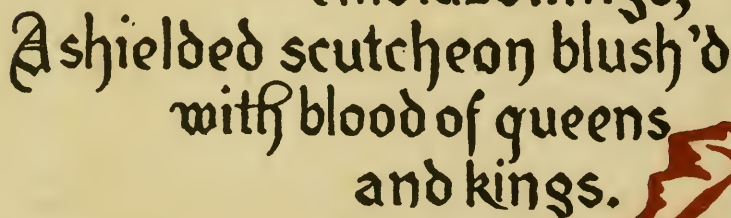 A shielded scutcheon blush'd
with blood of queens
and kings.